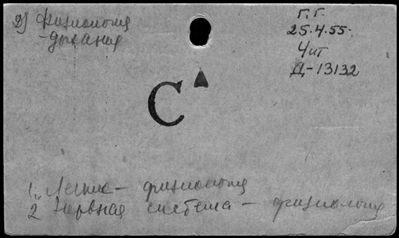 2) Физиология
- дыхания
Г. Г.
25.4.55.
4 шт
Д-13132
С
1. Легкие - физиология
2. Нервная система - физиология